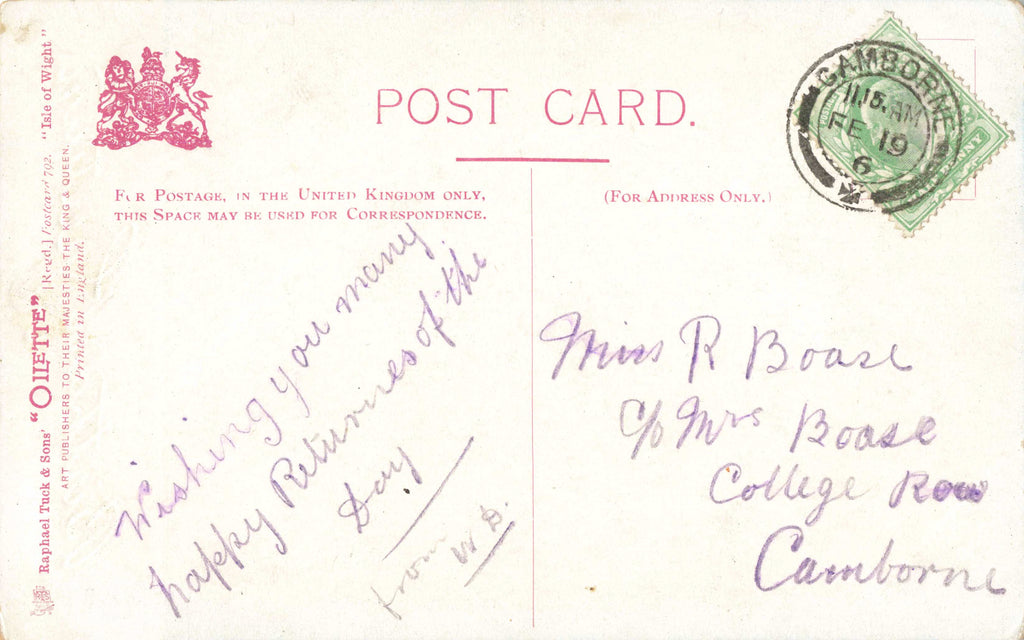 POST CARD.
FOR POSTAGE, IN THE UNITED KINGDOM ONLY,
THIS SPACE MAY BE USED FOR CORRESPONDENCE.
(FOR ADDRESS ONLY.)
CAMBORNE
11.15. AM
FE 19
6
PENNY
Wishing you many
happy Returnes of the
Day
from W B.
Miss R Boase
c/o Mrs Boase
College Row
Camborne
Raphael Tuck & Sons' "OILETTE" [Regd.] Postcard 792. "Isle of Wight"
ART PUBLISHERS TO THEIR MAJESTIES THE KING & QUEEN.
Printed in England.